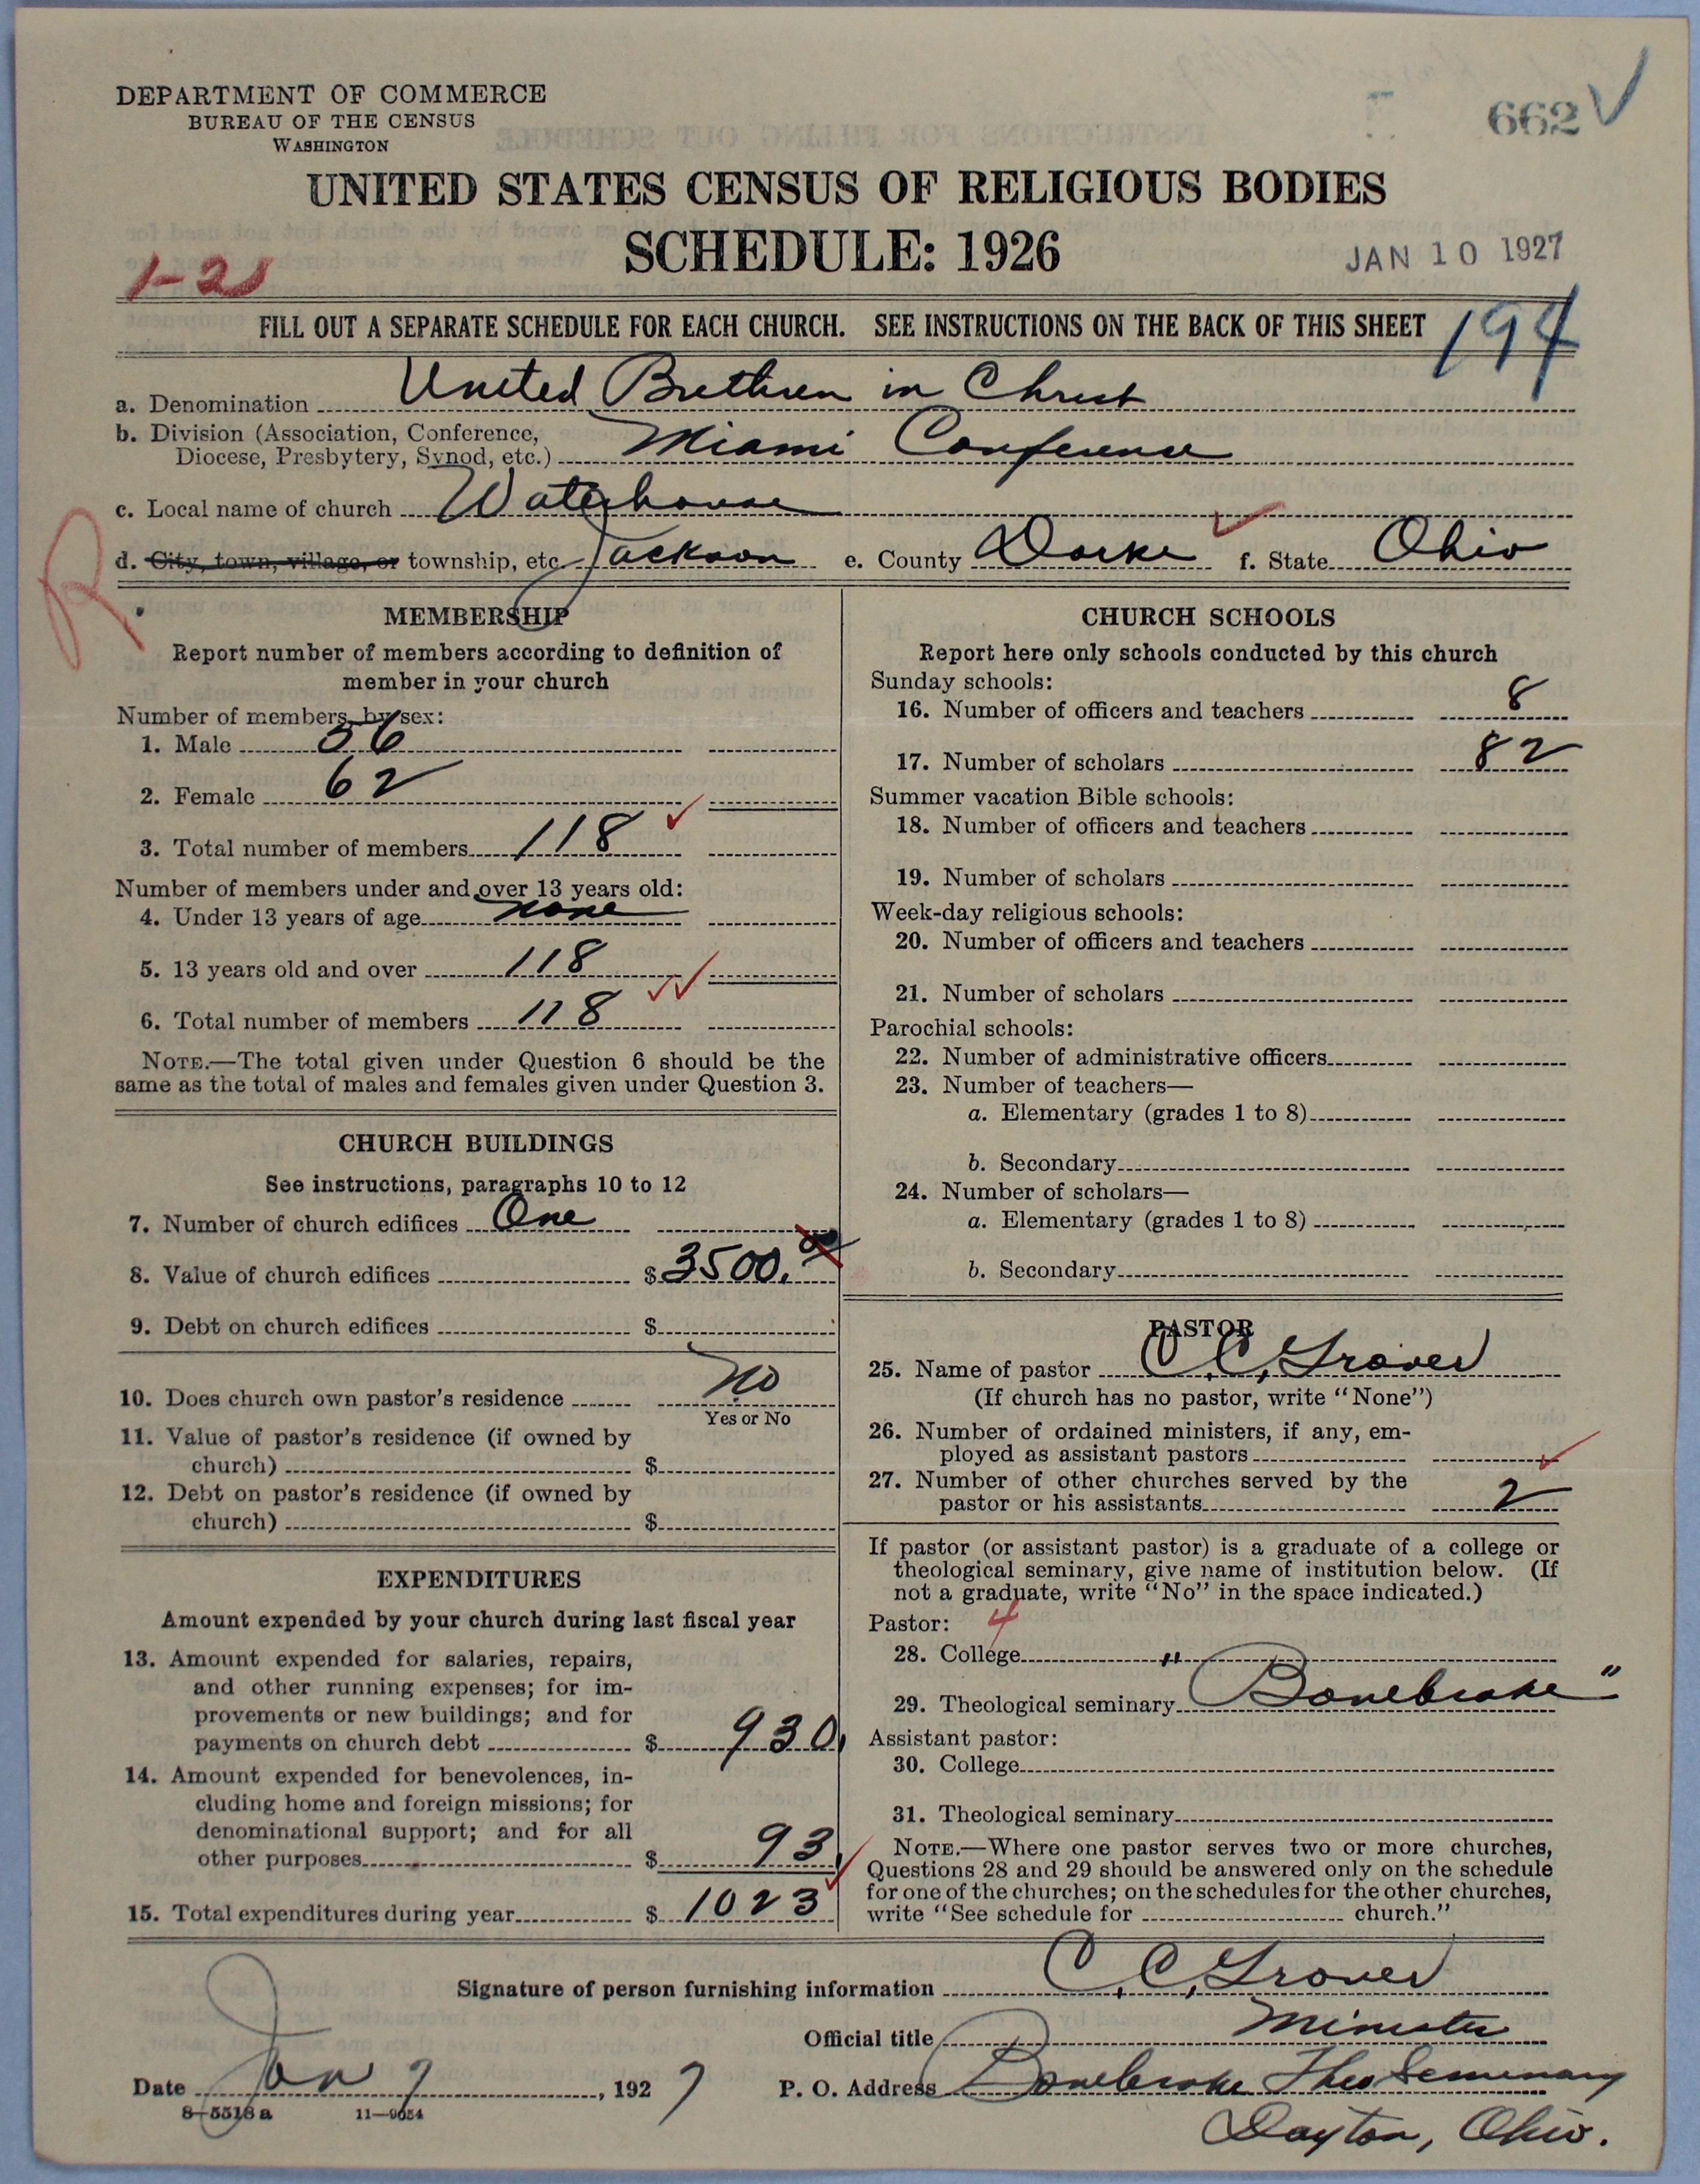 DEPARTMENT OF COMMERCE
BUREAU OF THE CENSUS
WASHINGTON
662 ✓
UNITED STATES CENSUS OF RELIGIOUS BODIES
SCHEDULE: 1926
JAN 10 1927
1-21
FILL OUT A SEPARATE SCHEDULE FOR EACH CHURCH. SEE INSTRUCTIONS ON THE BACK OF THIS SHEET
194
a. Denomination United Brethren in Christ
b. Division (Association, Conference,
Diocese, Presbytery, Synod, etc.) Miami Conference
c. Local name of church Waterhouse
d. City, town, village, or township, etc. Jackson e. County Darke f. State Ohio
R
MEMBERSHIP
Report number of members according to definition of
member in your church
Number of members, by sex:
1. Male 56
2. Female 62
3. Total number of members 118
Number of members under and over 13 years old:
4. Under 13 years of age none
5. 13 years old and over 118
6. Total number of members 118
NOTE.—The total given under Question 6 should be the
same as the total of males and females given under Question 3.
CHURCH BUILDINGS
See instructions, paragraphs 10 to 12
7. Number of church edifices One
8. Value of church edifices $ 3500.00
9. Debt on church edifices $
10. Does church own pastor's residence No
Yes or No
11. Value of pastor's residence (if owned by
church) $
12. Debt on pastor's residence (if owned by
church) $
EXPENDITURES
Amount expended by your church during last fiscal year
13. Amount expended for salaries, repairs,
and other running expenses; for im-
provements or new buildings; and for
payments on church debt $ 930.
14. Amount expended for benevolences, in-
cluding home and foreign missions; for
denominational support; and for all
other purposes $ 93.
15. Total expenditures during year $ 1023
CHURCH SCHOOLS
Report here only schools conducted by this church
Sunday schools:
16. Number of officers and teachers 8
17. Number of scholars 82
Summer vacation Bible schools:
18. Number of officers and teachers
19. Number of scholars
Week-day religious schools:
20. Number of officers and teachers
21. Number of scholars
Parochial schools:
22. Number of administrative officers
23. Number of teachers—
a. Elementary (grades 1 to 8)
b. Secondary
24. Number of scholars—
a. Elementary (grades 1 to 8)
b. Secondary
PASTOR
25. Name of pastor C. C. Grover
(If church has no pastor, write "None")
26. Number of ordained ministers, if any, em-
ployed as assistant pastors
27. Number of other churches served by the
pastor or his assistants 2
If pastor (or assistant pastor) is a graduate of a college or
theological seminary, give name of institution below. (If
not a graduate, write "No" in the space indicated.)
Pastor: 4
28. College
29. Theological seminary "Bonebrake"
Assistant pastor:
30. College
31. Theological seminary
NOTE.—Where one pastor serves two or more churches,
Questions 28 and 29 should be answered only on the schedule
for one of the churches; on the schedules for the other churches,
write "See schedule for church."
Signature of person furnishing information C. C. Grover
Official title Minister
Date Jan 7, 1927 P. O. Address Bonebrake Theo Seminary
8-5518a 11-9054
Dayton, Ohio.